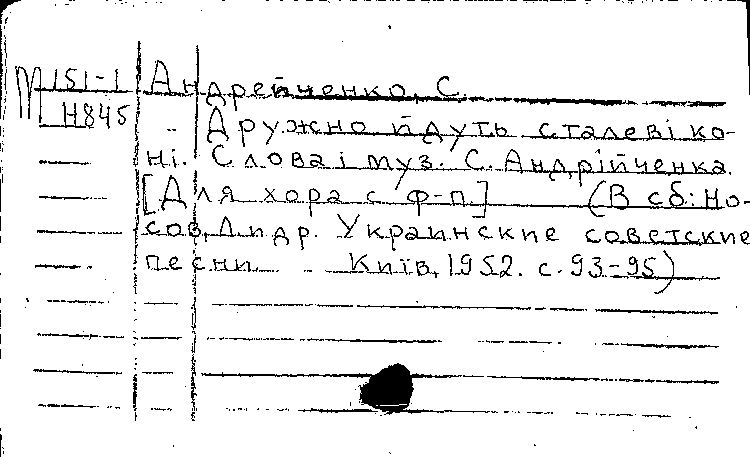 М 151-1 Андрейченко, С.
Н845 Дружно йдуть сталеві ко-
ні. Слова і муз. С. Андрійченка.
[Для хора с ф-п] (В сб: Но-
сов, Л и др. Украинские советские
песни Київ, 1952. с. 93-95)